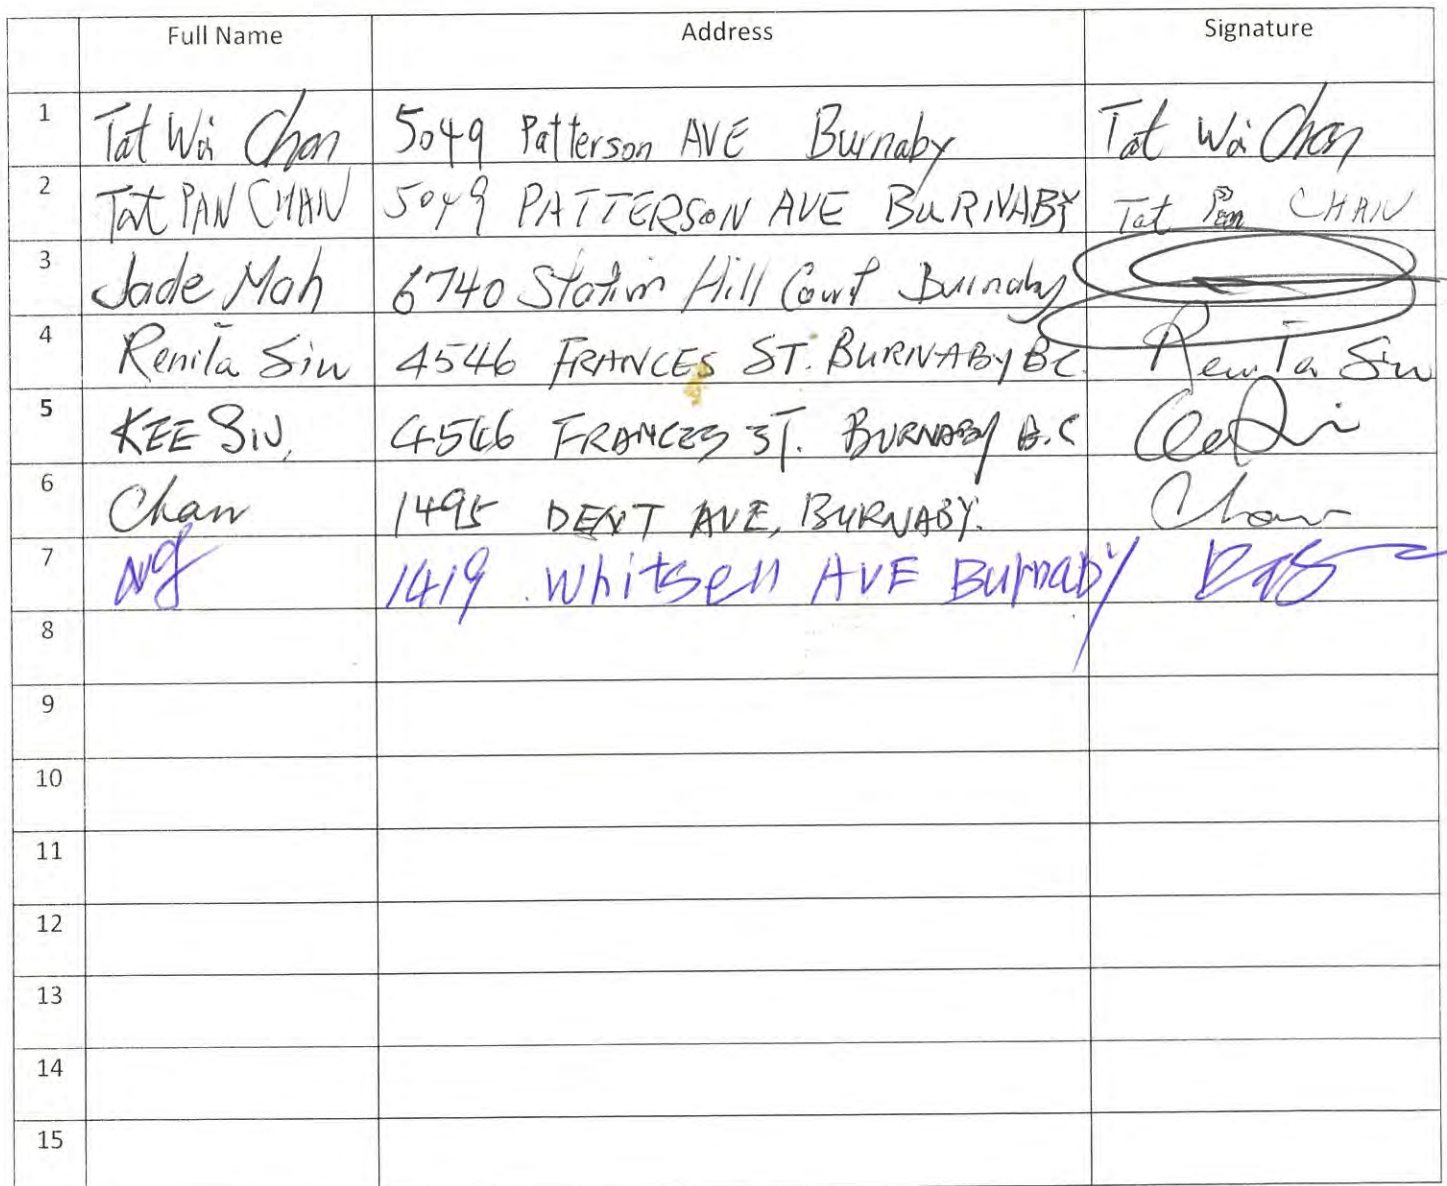 Full Name Address Signature
1 Tat Wai Chan 5049 Patterson AVE Burnaby Tat Wai Chan
2 Tat PAN CHAN 5049 PATTERSON AVE BURNABY Tat Pan CHAN
3 Jade Mah 6740 Station Hill Court Burnaby
4 Renita Siu 4546 FRANCES ST. BURNABY BC. Renita Siu
5 KEE SIU, 4546 FRANCES ST. BURNABY B.C
6 Chan 1495 DENT AVE, BURNABY. Chan
7 Ng 1419 Whitsell AVE Burnaby
8
9
10
11
12
13
14
15